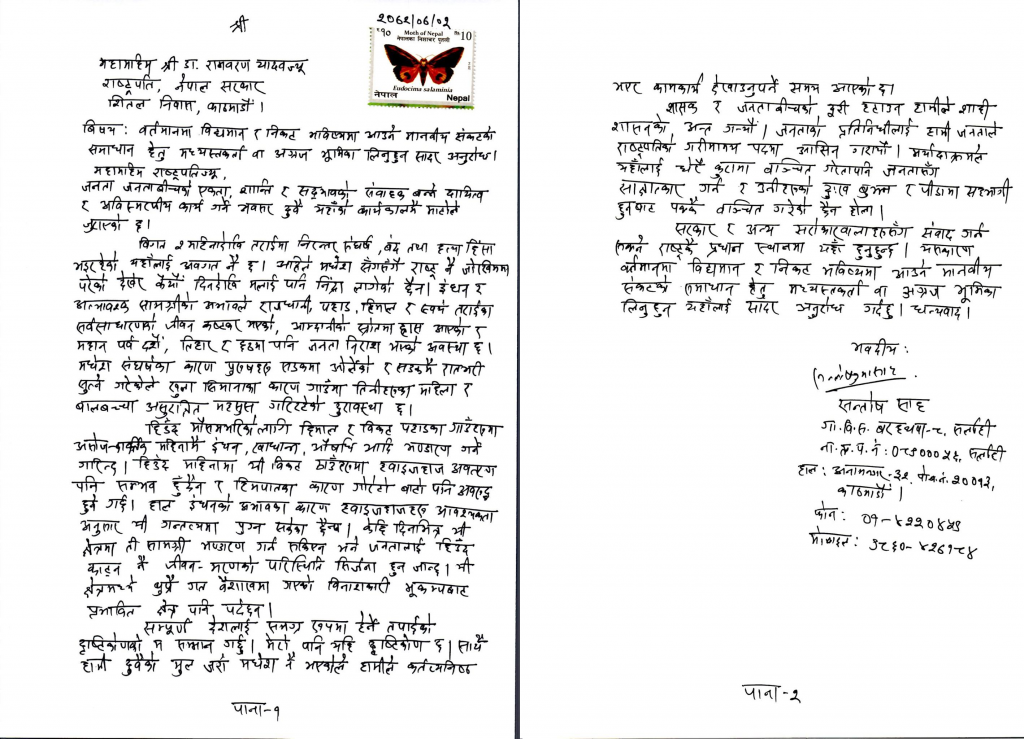 श्री
२०७२/०६/०२
रु१० Moth of Nepal Rs 10
नेपालका निशाचर पुतली
Eudocima salaminia
नेपाल Nepal
महामहिम श्री डा. रामवरण यादवज्यू
राष्ट्रपति, नेपाल सरकार
शितल निवास, काठमाडौं।
बिषय: वर्तमानमा विद्यमान र निकट भविष्यमा आउने मानवीय संकटको
समाधान हेतु मध्यस्तकर्ता वा अग्रज भूमिका लिनुहुन सादर अनुरोध।
महामहिम राष्ट्रपतिज्यू,
जनता जनताबीचको एकता, शान्ति र सद्भावको संवाहक बन्ने दायित्व
र अविस्मरणीय कार्य गर्ने अवसर दुवै यहाँको कार्यकालमै माटोले
जुराएको छ।
विगत २ महिनादेखि तराईमा निरन्तर संघर्ष, बंद तथा हत्या हिंसा
भइरहेको यहाँलाई अवगत नै छ। अहिले मधेश सँगसँगै राष्ट्र नै जोखिममा
परेको देखेर कैयौं दिनदेखि मलाई पनि निद्रा लागेको छैन। इंधन र
अत्यावश्यक सामग्रीको अभावले राजधानी, पहाड, हिमाल र स्वयं तराईका
सर्वसाधारणको जीवन कष्टकर भएको, आम्दानीको स्रोतमा ह्रास आएको र
महान पर्व दशैं, तिहार र छठमा पनि जनता निराश भएको अवस्था छ।
मधेश संघर्षका कारण पुरुषहरु सडकमा ओर्लेको र सडकमै रातभरी
सुत्ने गरेकोले खुला सिमानाका कारण गाउँमा तिनीहरुका महिला र
बालबच्चा असुरक्षित महसुस गरिरहेको दुरावस्था छ।
हिउँद मौसमभरिको लागि हिमाल र विकट पहाडका गाउँहरुमा
असोज-कार्तिक महिनामै इंधन, खाद्यान्न, औषधि आदि भण्डारण गर्ने
गरिन्छ। हिउँद महिनामा यी विकट ठाउँहरुमा हवाइजहाज अवतरण
पनि सम्भव हुँदैन र हिमपातका कारण गोरेटो बाटो पनि अवरुद्ध
हुने गर्छ। हाल इंधनको अभावका कारण हवाइजहाजहरु आवश्यकता
अनुसार यी गन्तव्यमा पुग्न सकेका छैनन्। केहि दिनभित्र यी
क्षेत्रमा ती सामग्री भण्डारण गर्न सकिएन भने जनतालाई हिउँद
काट्न नै जीवन-मरणको परिस्थिति सिर्जना हुन जान्छ। यी
क्षेत्रमध्ये थुप्रै गत वैशाखमा गएको विनाशकारी भूकम्पबाट
प्रभावित क्षेत्र पनि पर्दछन।
सम्पूर्ण देशलाई समग्र रुपमा हेर्ने तपाईंको
दृष्टिकोणको म सम्मान गर्छु। मेरो पनि यहि दृष्टिकोण छ। साथै
हामी दुवैको मुल जरो मधेश नै भएकोले हामीले कर्तव्यनिष्ठ
पाना-१
भएर कामकार्य देखाउनुपर्ने समय आएको छ।
शासक र जनताबीचको दुरी हटाउन हामीले शाही
शासनको अन्त गर्‍यौं। जनताको प्रतिनिधीलाई हामी जनताले
राष्ट्रपतिको गरीमामय पदमा आसिन गरायौं। मर्यादाक्रमले
यहाँलाई धेरै कुरामा वञ्चित गरेतापनि जनतासँग
साक्षात्कार गर्न र उनीहरुको दुःख बुझ्न र पीडामा सहभागी
हुनबाट पक्कै वाञ्चित गरेको छैन होला।
सरकार र अन्य सरोकारवालाहरुसँग संवाद गर्न
सक्ने राष्ट्रकै प्रधान स्थानमा यहाँ हुनुहुन्छ। यसकारण
वर्तमानमा विद्यमान र निकट भविष्यमा आउने मानवीय
संकटको समाधान हेतु मध्यस्तकर्ता वा अग्रज भूमिका
लिनुहुन यहाँलाई सादर अनुरोध गर्दछु। धन्यवाद।
भवदीय:
सन्तोष साह
गा.वि.स. बरहथवा-८, सर्लाही
ना.प्र.प.नं:
हाल: अनामनगर-३२, पो.ब.नं. २०११२,
काठमाडौं।
फोन:
मोबाइल:
पाना-२